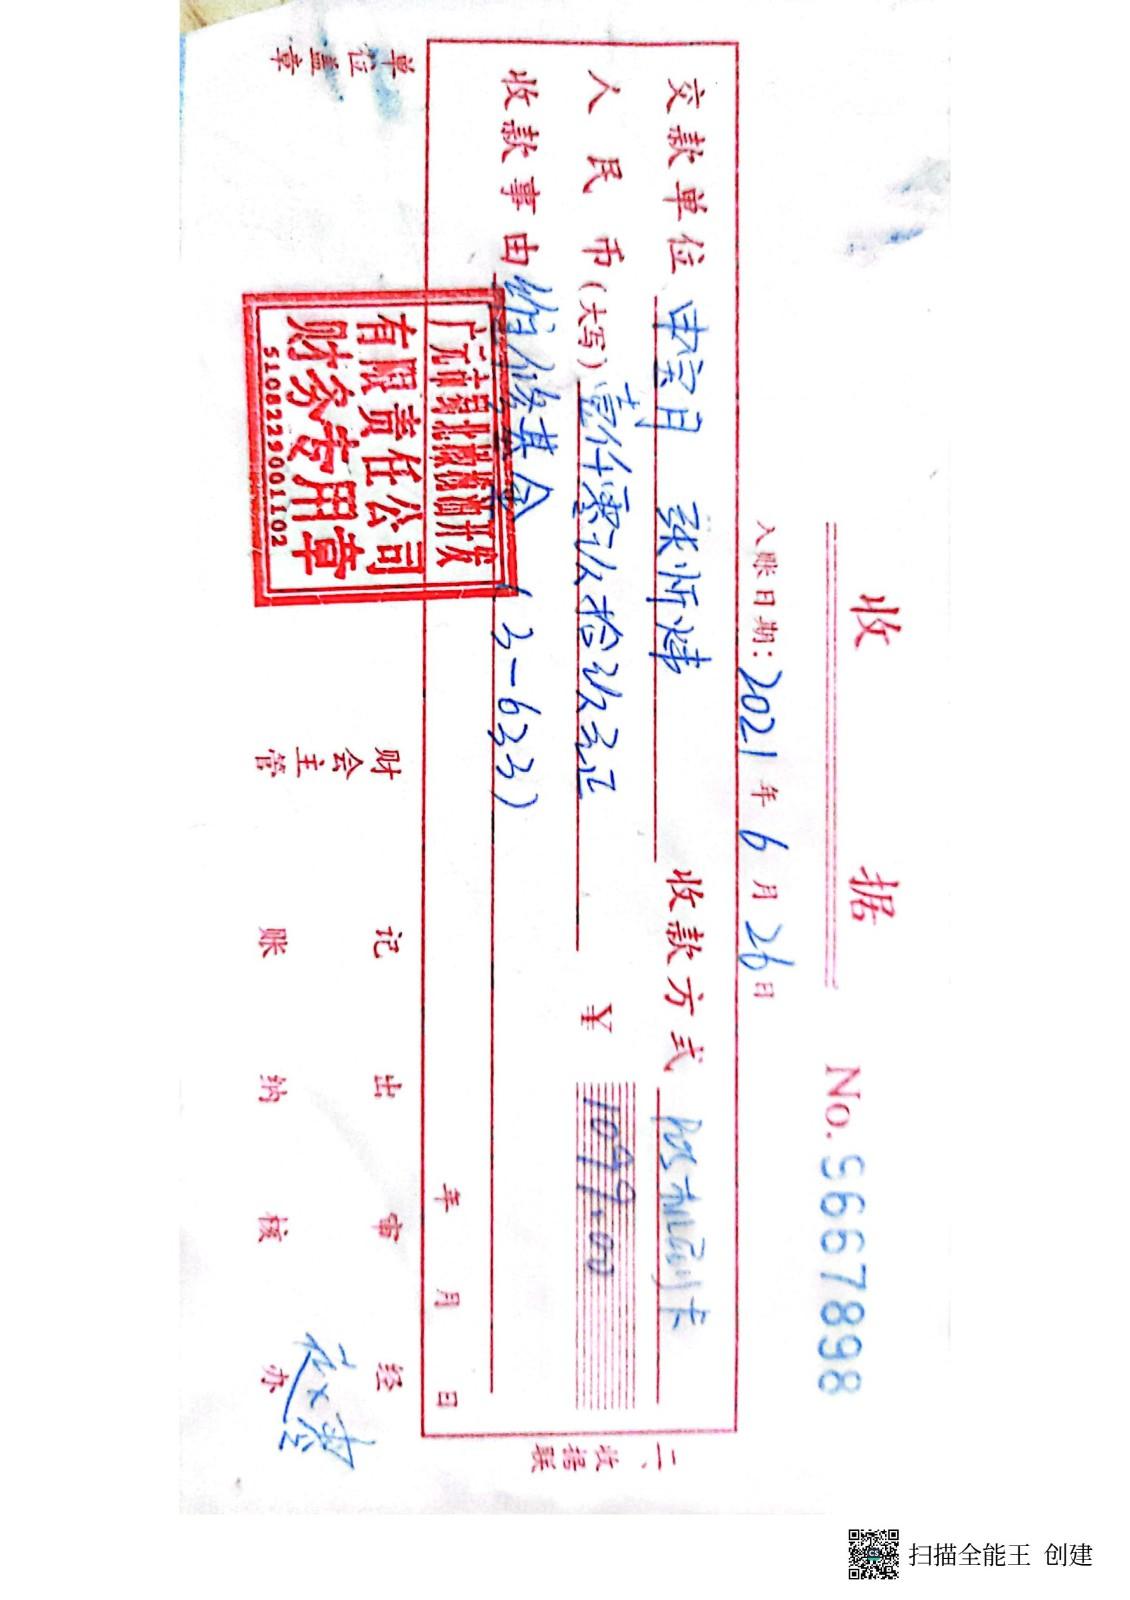 收 据
No. 5667898
入账日期: 2021 年 6 月 26 日
交款单位 申宗月 张忻炜 收款方式 刷卡
人民币(大写) 壹仟零玖拾玖元正 ¥ 1099.00
收款事由 维修基金 (3-633)
年 月 日
广元市
有限责任公司
财务专用章
5108229001102
单位盖章 财会主管 记账 出纳 审核 经办
二、收据联
扫描全能王 创建